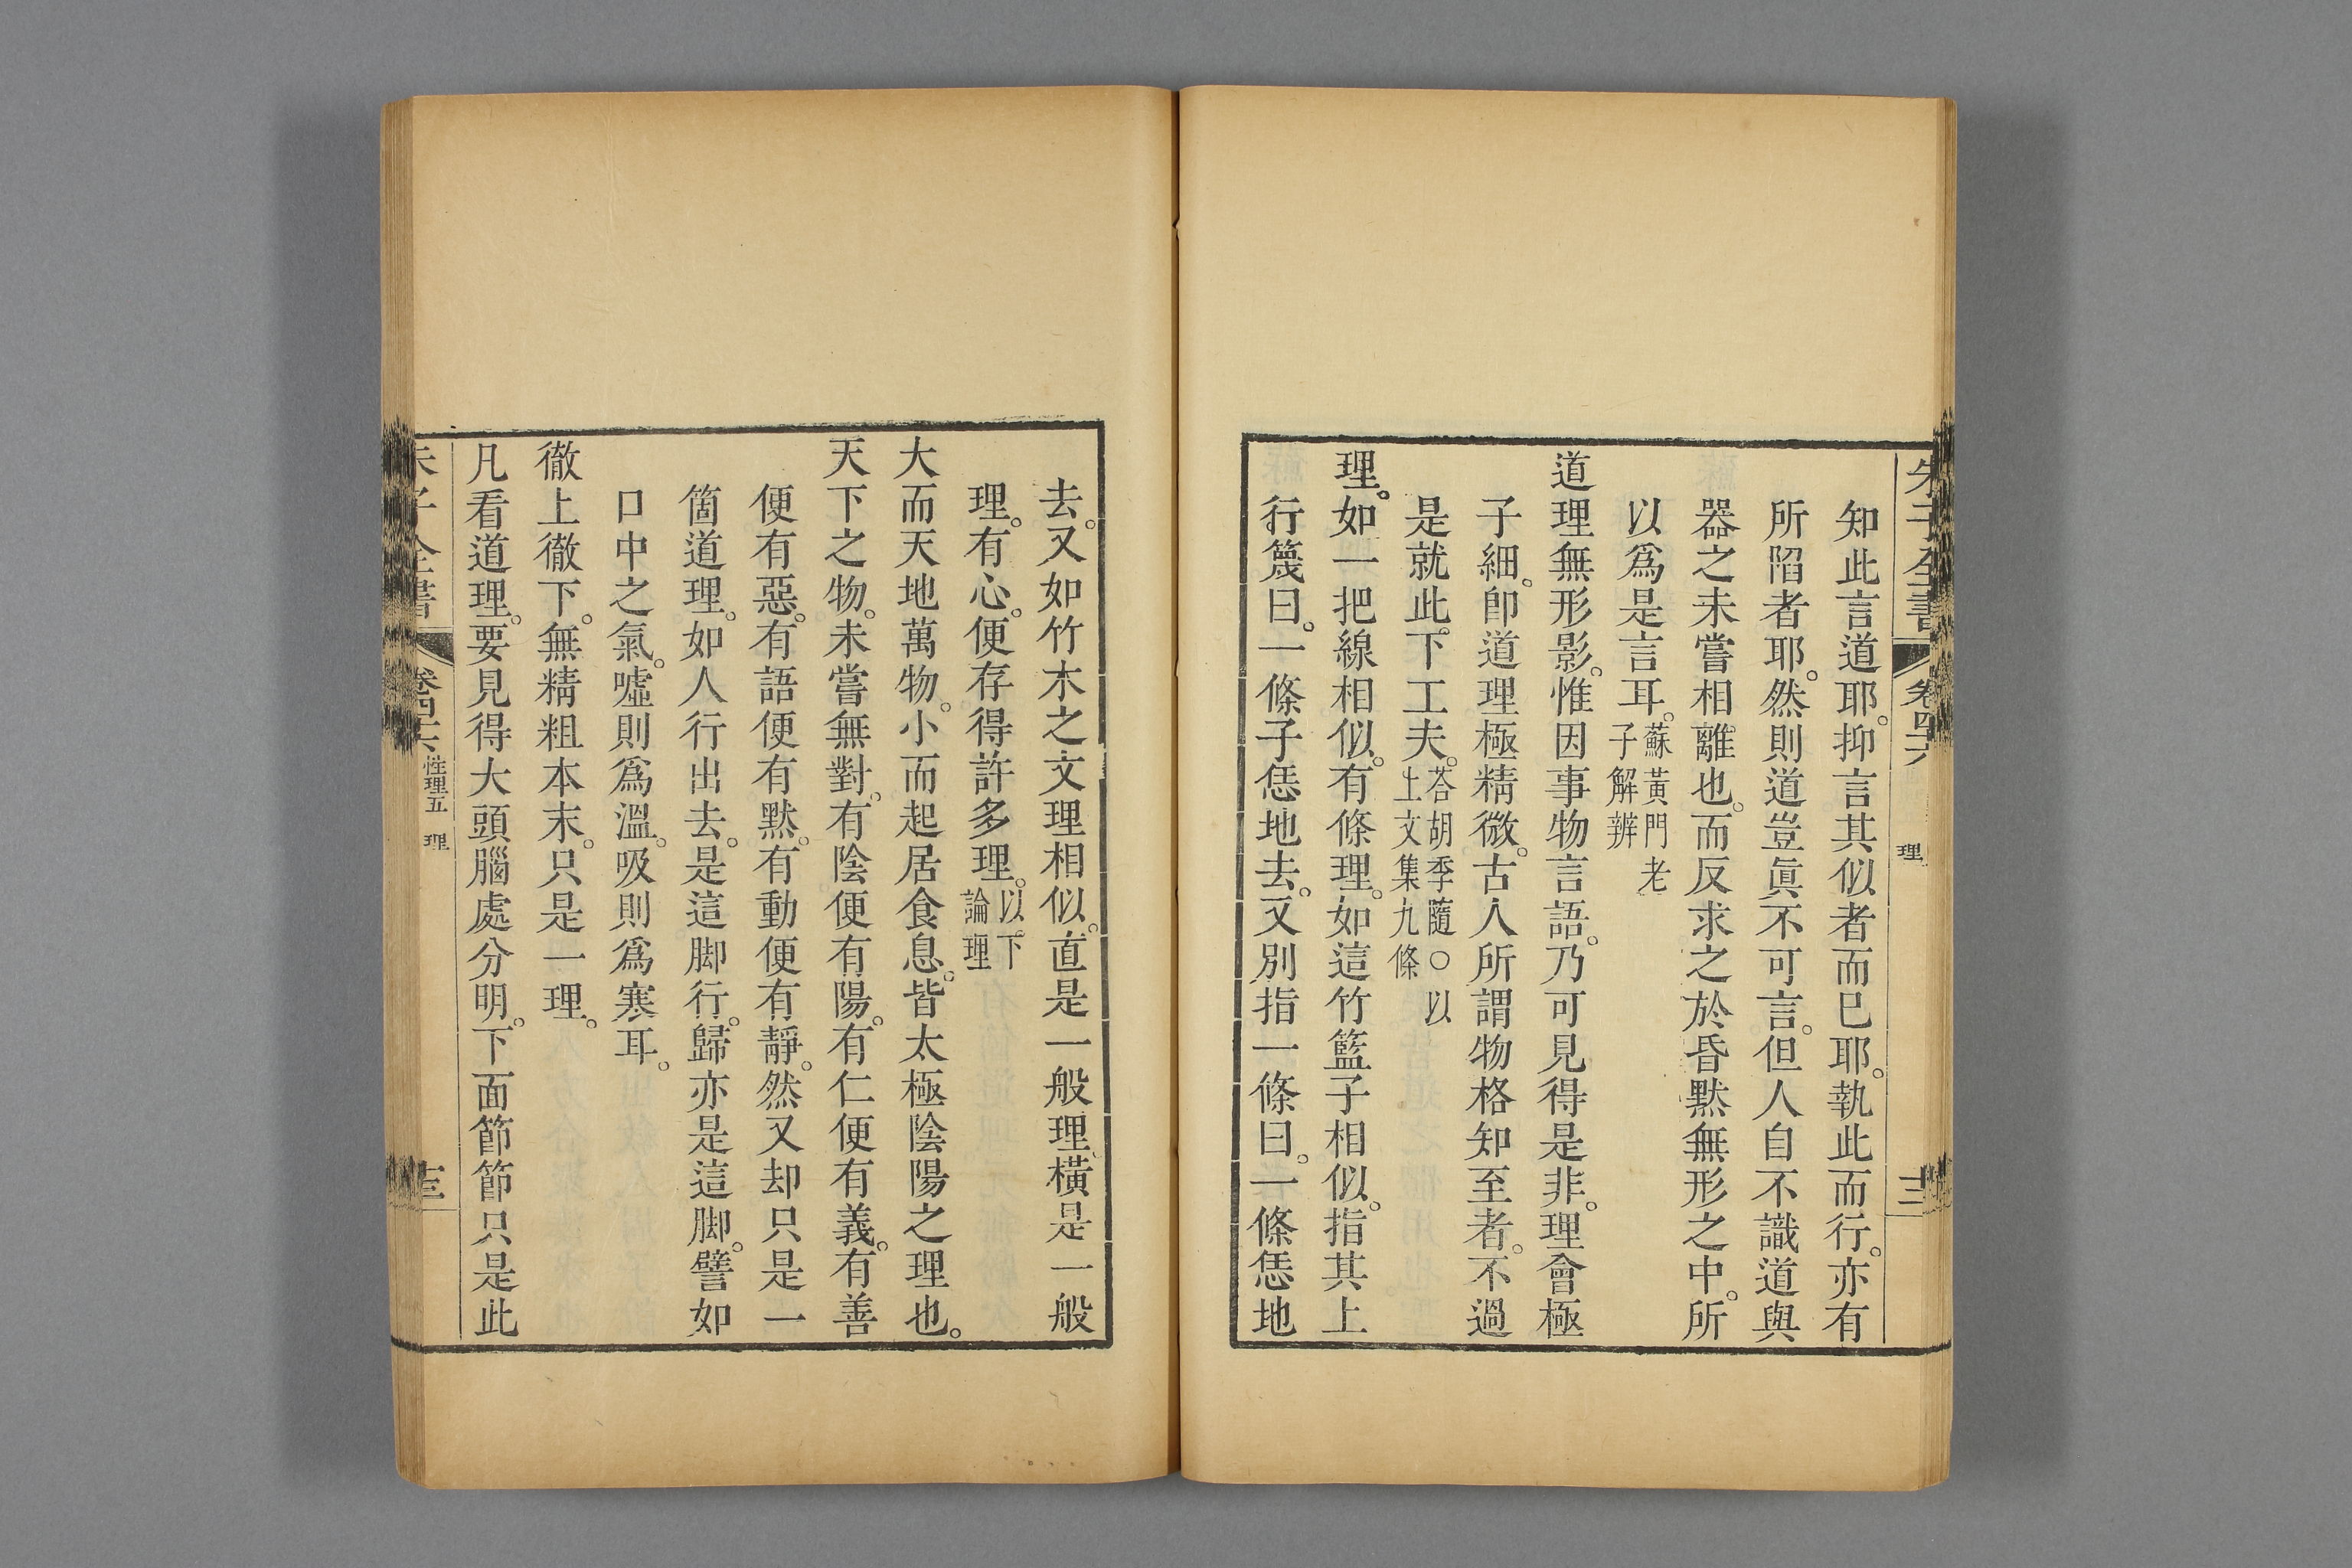 朱子全書 卷四十六 理 十二
知此言道耶。抑言其似者而已耶。執此而行。亦有
所陷者耶。然則道豈眞不可言。但人自不識道與
器之未嘗相離也。而反求之於昏默無形之中。所
以爲是言耳。蘇黃門老子解辨
道理無形影。惟因事物言語。乃可見得是非。理會極
子細。卽道理極精微。古人所謂物格知至者。不過
是就此下工夫。答胡季隨○以上文集九條
理。如一把線相似。有條理。如這竹籃子相似。指其上
行篾曰。一條子恁地去。又別指一條曰。一條恁地
去。又如竹木之文理相似。直是一般理。橫是一般
理。有心。便存得許多理。以下論理
大而天地萬物。小而起居食息。皆太極陰陽之理也。
天下之物。未嘗無對。有陰便有陽。有仁便有義。有善
便有惡。有語便有默。有動便有靜。然又却只是一
箇道理。如人行出去。是這脚行。歸亦是這脚。譬如
口中之氣。噓則爲溫。吸則爲寒耳。
徹上徹下。無精粗本末。只是一理。
凡看道理。要見得大頭腦處分明。下面節節只是此
朱子全書 卷四十六 性理五 理 十三